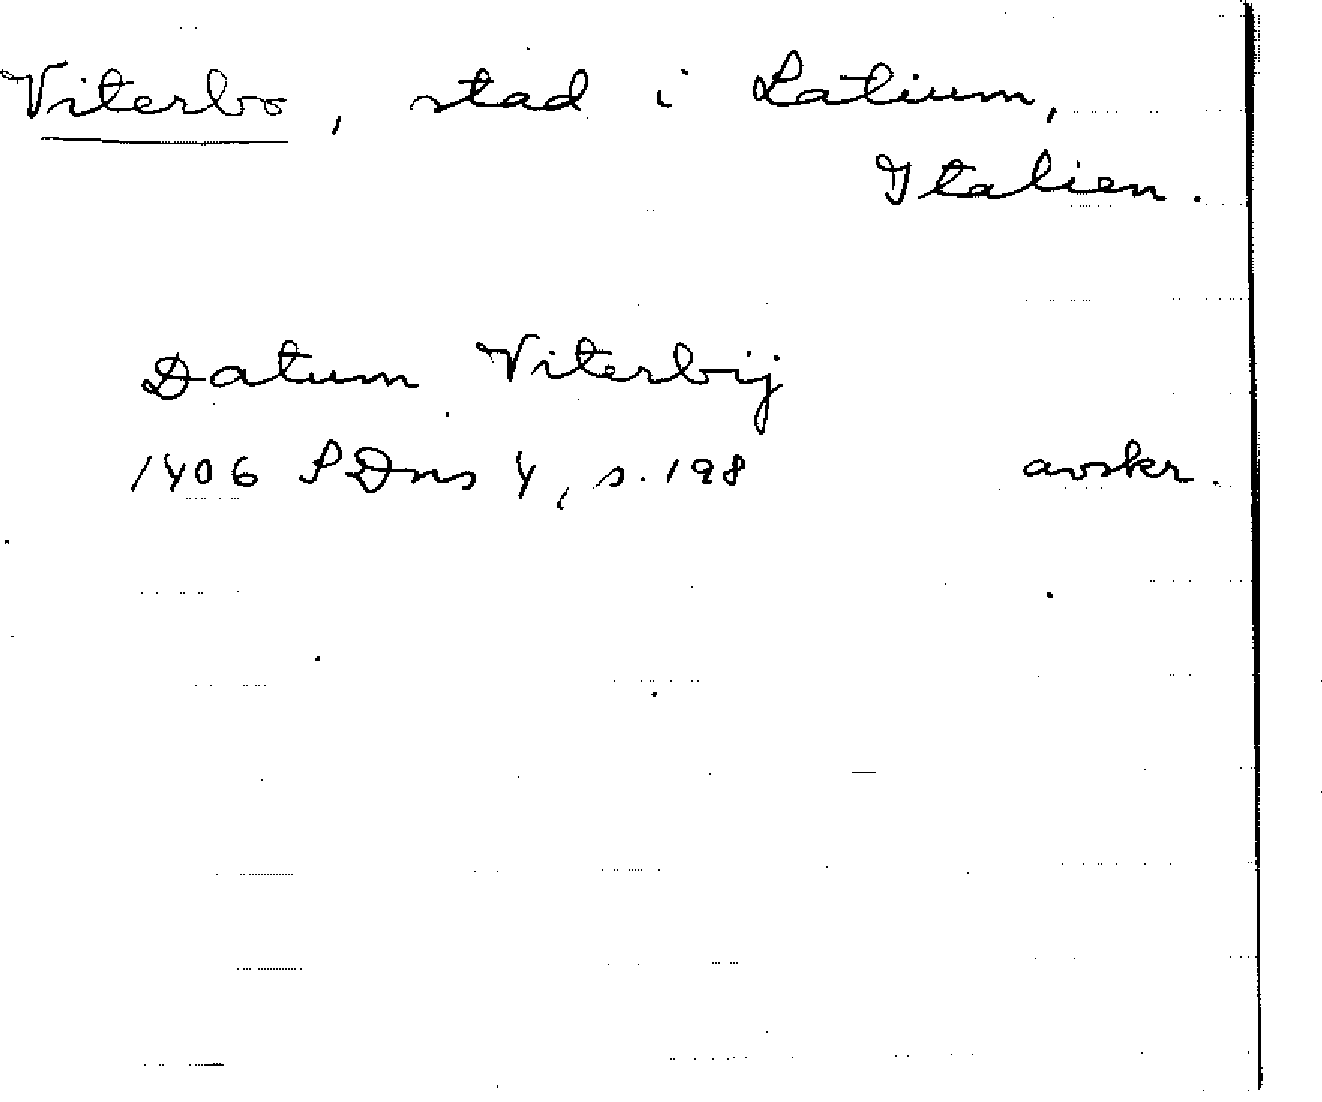 Viterbo, stad i Latium,
Italien.
Datum Viterbij
1406 SDns 4, s. 198 avskr.